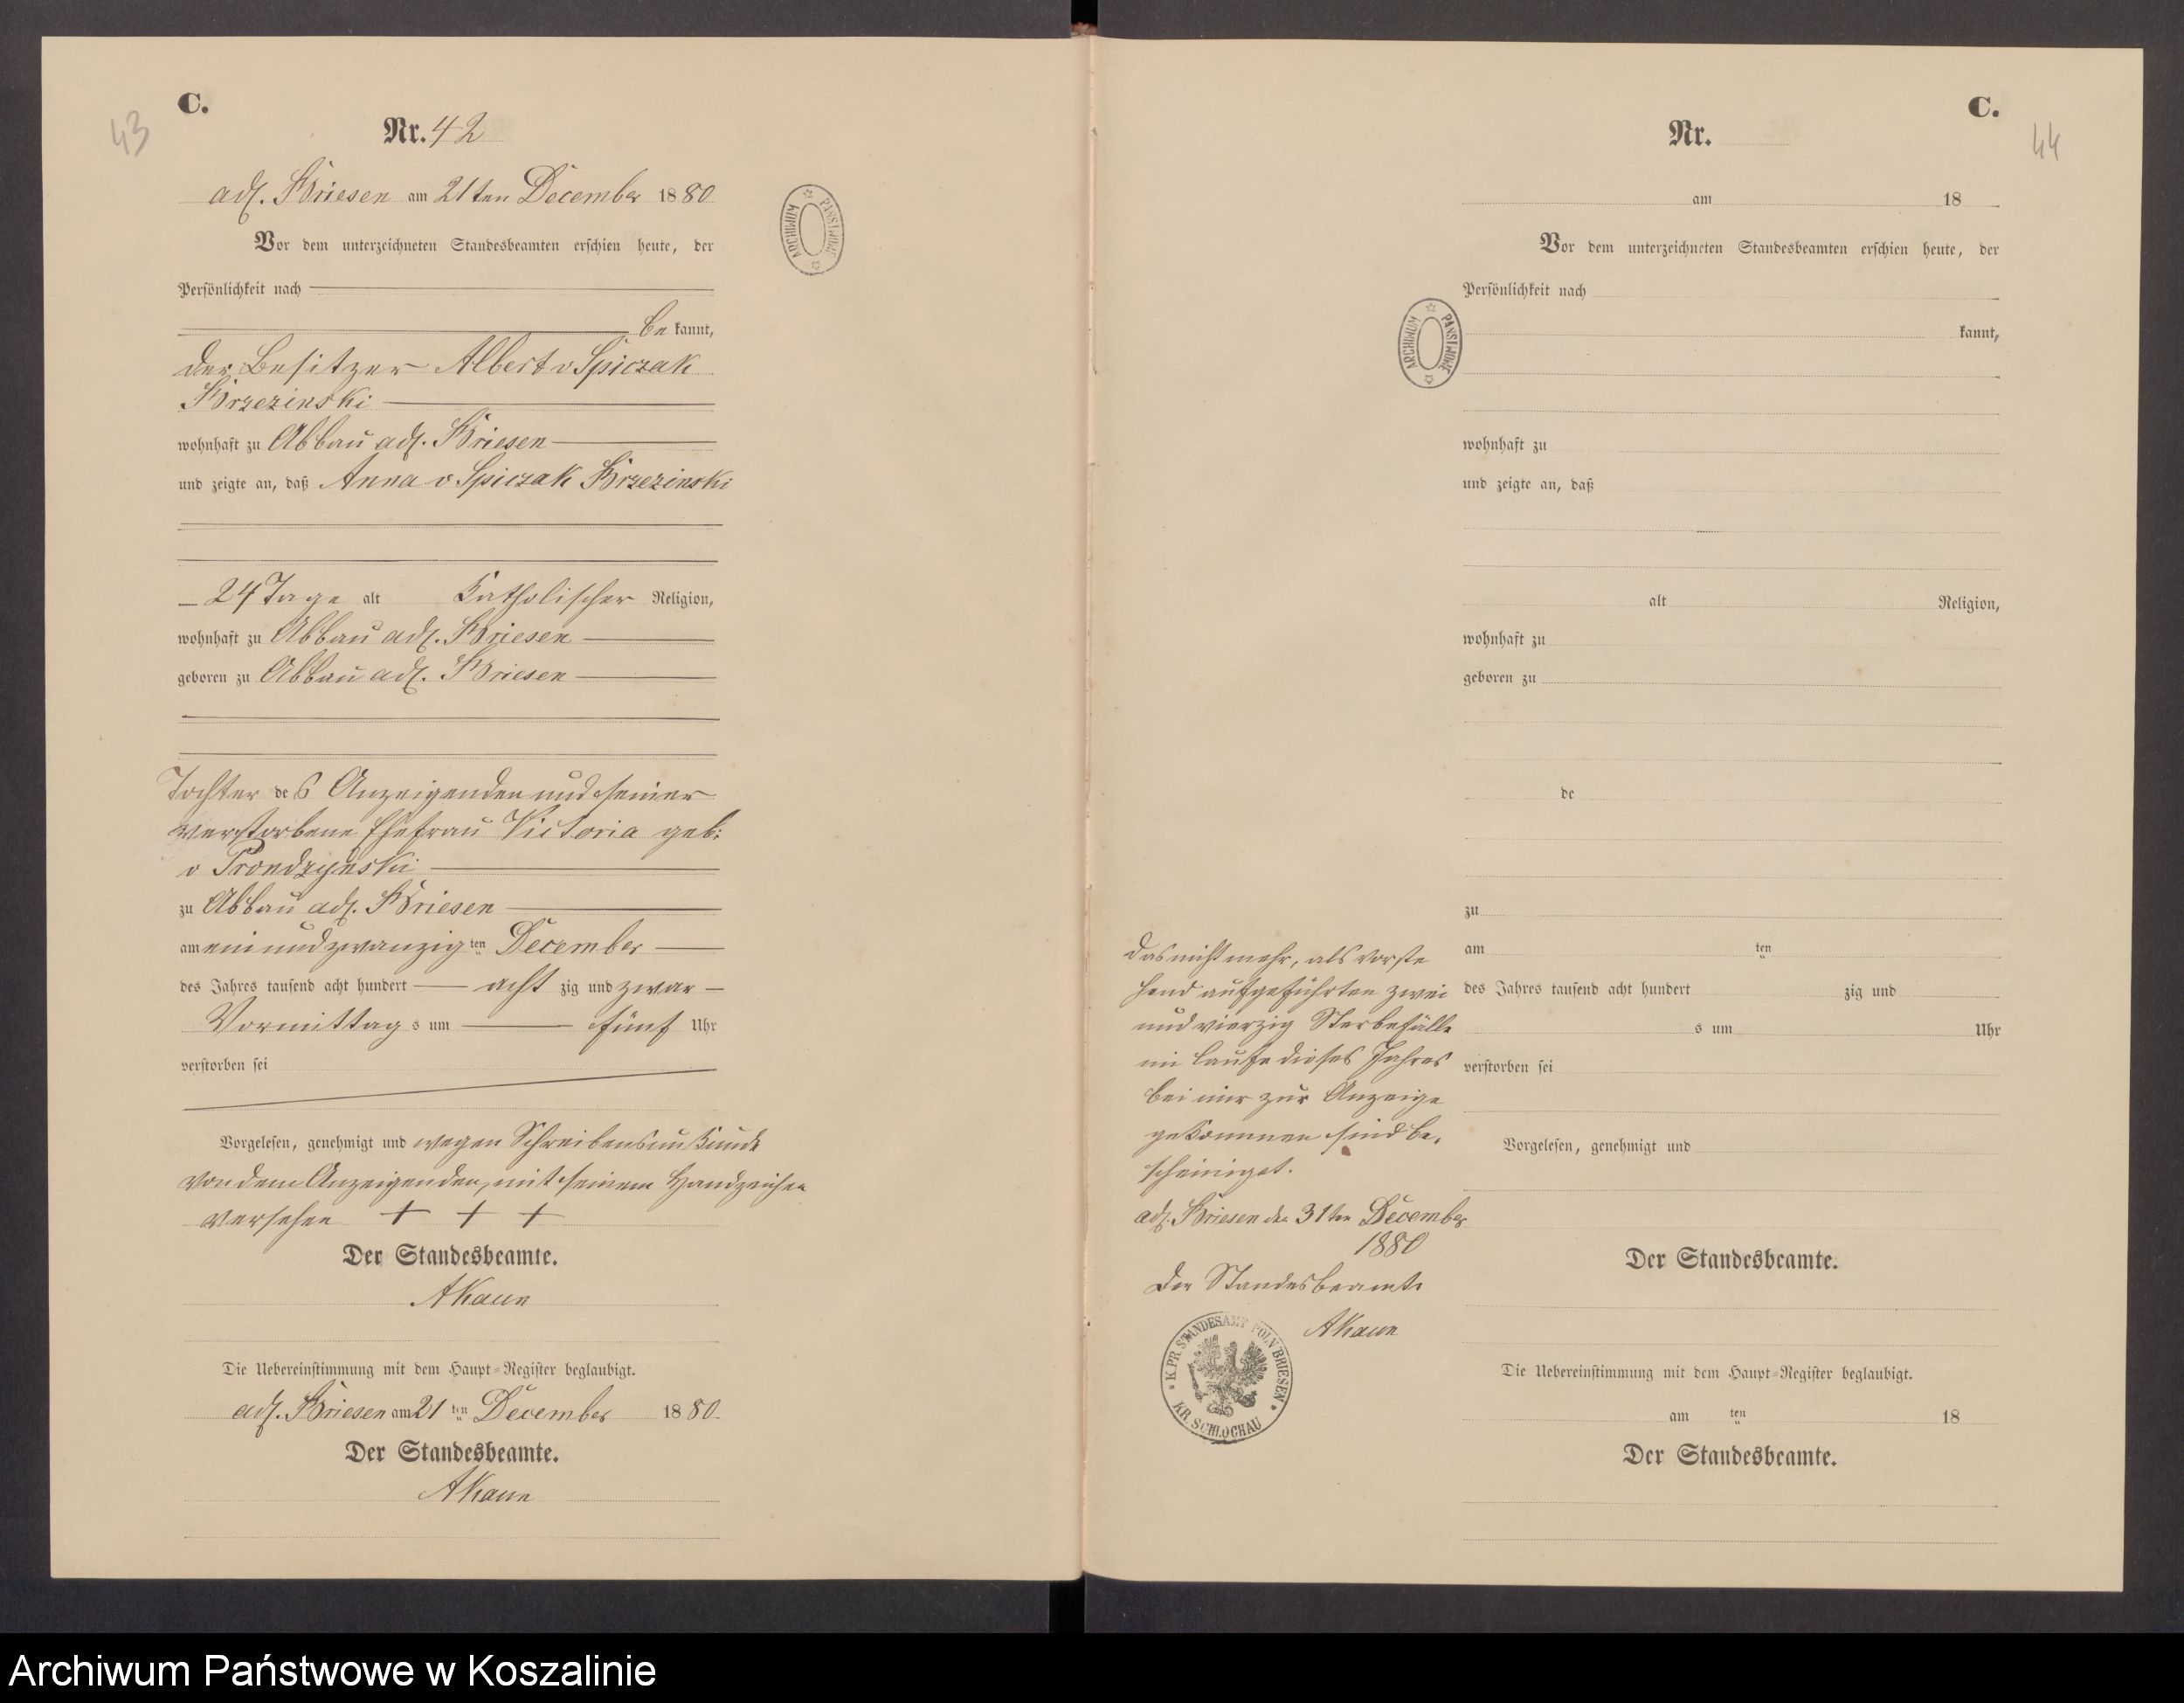 43
C.
Nr. 42
adl. Briesen am 21ten December 1880
Vor dem unterzeichneten Standesbeamten erschien heute, der
Persönlichkeit nach
be kannt,
der Besitzer Albert v Spiczak
Brzezinski
wohnhaft zu Abbau adl. Briesen
und zeigte an, daß Anna v Spiczak Brzezinski
24 Tage alt Katholischer Religion,
wohnhaft zu Abbau adl. Briesen
geboren zu Abbau adl. Briesen
Tochter des Anzeigenden und seiner
verstorbene Ehefrau Victoria geb:
v Prondzynski
zu Abbau adl. Briesen
am ein und zwanzig ten December
des Jahres tausend acht hundert acht zig und zwar
Vormittag s um fünf Uhr
verstorben sei
Vorgelesen, genehmigt und wegen Schreibensunkunde
von dem Anzeigenden, mit seinem Handzeichen
versehen + + +
Der Standesbeamte.
AKaun
Die Uebereinstimmung mit dem Haupt-Register beglaubigt.
adl. Briesen am 21 ten December 1880.
Der Standesbeamte.
AKaun
ARCHIWUM PAŃSTWOWE
C.
44
Nr.
am 18
Vor dem unterzeichneten Standesbeamten erschien heute, der
Persönlichkeit nach
kannt,
ARCHIWUM PAŃSTWOWE
wohnhaft zu
und zeigte an, daß
alt Religion,
wohnhaft zu
geboren zu
de
zu
am ten
des Jahres tausend acht hundert zig und
s um Uhr
verstorben sei
Vorgelesen, genehmigt und
Der Standesbeamte.
Die Uebereinstimmung mit dem Haupt-Register beglaubigt.
am ten 18
Der Standesbeamte.
Das nicht mehr, als vorste
hend aufgeführten zwei
und vierzig Sterbefälle
im Laufe dieses Jahres
bei mir zur Anzeige
gekommen sind be-
scheiniget.
adl. Briesen den 31ten December
1880
Der Standesbeamte
AKaun
K. PR. STANDESAMT POLN. BRIESEN
KR. SCHLOCHAU
Archiwum Państwowe w Koszalinie